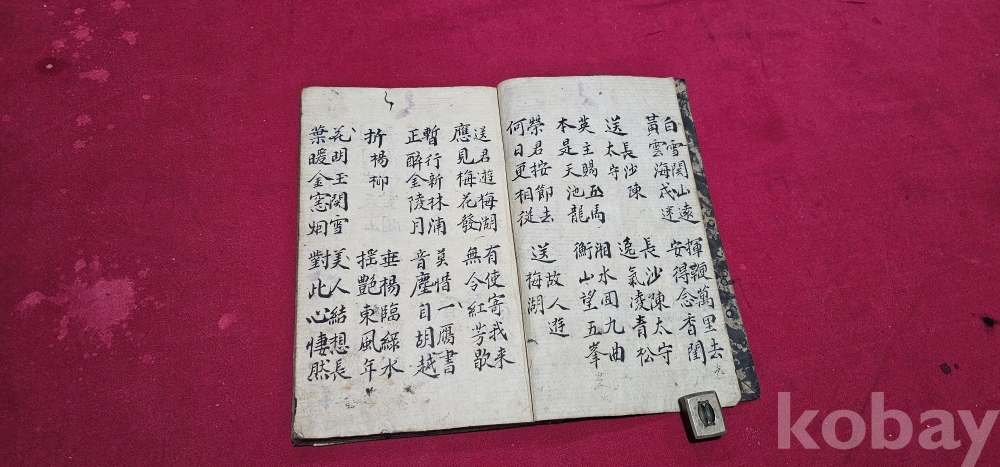 白雪関山遠
黃雲海戍迷
揮鞭萬里去
安得念香閨
送長沙陳太守
長沙陳太守
逸氣凌青松
英主賜五馬
本是天池龍
湘水囬九曲
衡山望五峯
榮君按節去
何日更相從
送故人遊梅湖
送君遊梅湖
應見梅花發
有使寄我来
無令紅芳歇
暫行新林浦
正醉金陵月
莫惜一鴈書
音塵自胡越
折楊柳
垂楊臨綠水
搖艷東風年
花明玉関雪
葉暖金窓烟
美人結想長
對此心悽然
kobay